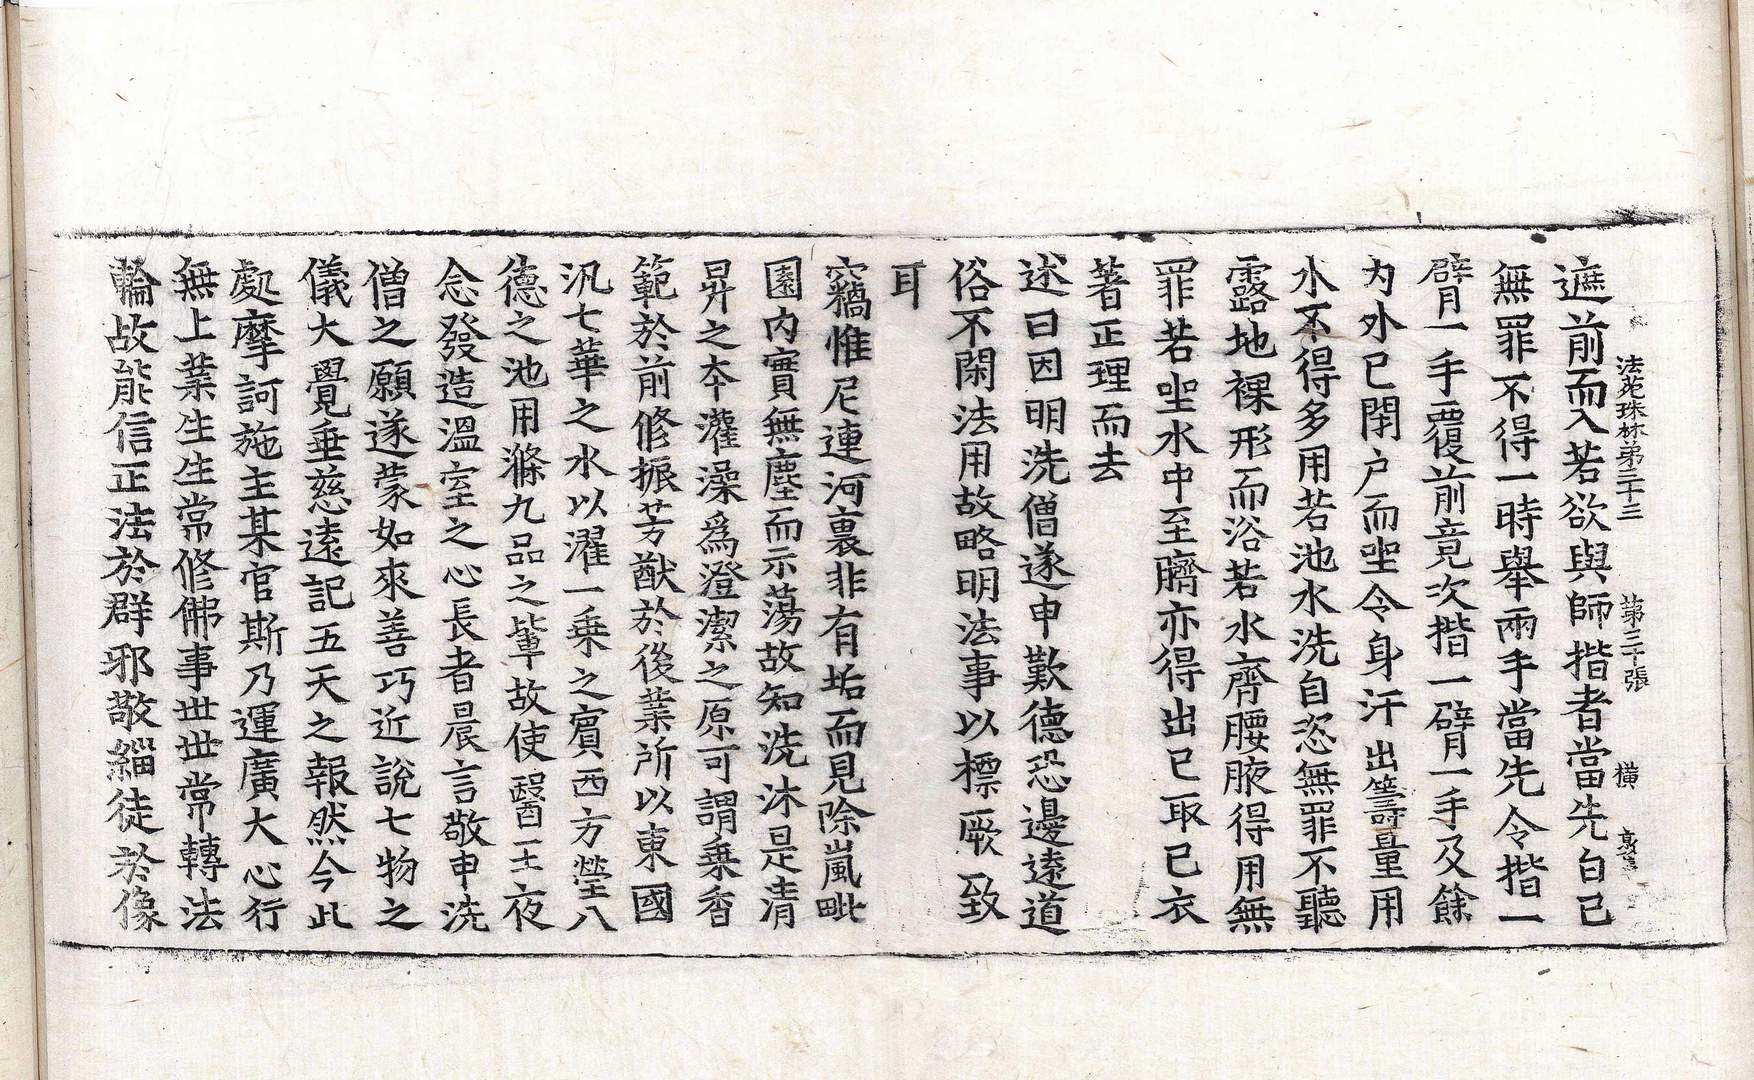 法苑珠林第三十三 第三十張 橫
遮前而入若欲與師揩者當先白已
無罪不得一時舉兩手當先令揩一
臂一手覆前竟次揩一臂一手及餘
內外已閇户而坐令身汗出籌量用
水不得多用若池水洗自恣無罪不聽
露地裸形而浴若水齊腰腋得用無
罪若坐水中至臍亦得出已取已衣
著正理而去
述曰因明洗僧遂申歎德恐邊遠道
俗不閑法用故略明法事以標厥致
耳
竊惟尼連河裏非有垢而見除嵐毗
園內實無塵而示蕩故知洗沐是清
昇之本灌澡爲澄潔之原可謂乗香
範於前修振芳猷於後葉所以東國
汎七華之水以濯一乗之賓西方瑩八
德之池用滌九品之輩故使醫王夜
念發造溫室之心長者晨言敬申洗
僧之願遂蒙如來善巧近說七物之
儀大覺垂慈遠記五天之報然今此
處摩訶施主某官斯乃運廣大心行
無上業生生常修佛事世世常轉法
輪故能信正法於群邪敬緇徒於像